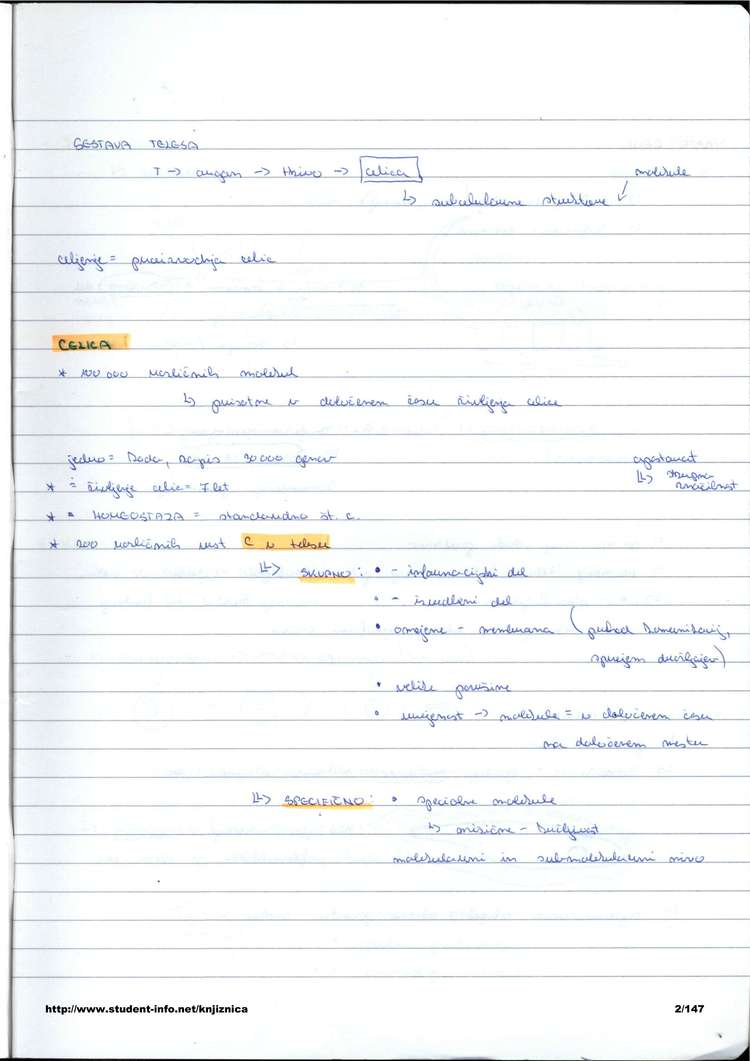 SESTAVA TELESA
T -> organ -> tkivo -> celica molekule
↳ subcelularne strukture
celjenje = proizvodnja celic
CELICA
* 100 000 različnih molekul
↳ prisotne v določenem času življenja celice
jedro = koda, zapis 30 000 genov
* življenje celic = 7 let
* = HOMEOSTAZA = standardno št. c.
* 200 različnih vrst C v telesu
SKUPNO : • - informacijski del
• - izvedbeni del
• omejene - membrana (prehod komunikacij,
sprejem dražljajev)
• velike površine
• urejenost -> molekule = v določenem času
na določenem mestu
SPECIFIČNO : • specialne molekule
↳ mišične - krčljivost
molekularni in submolekularni nivo
http://www.student-info.net/knjiznica 2/147